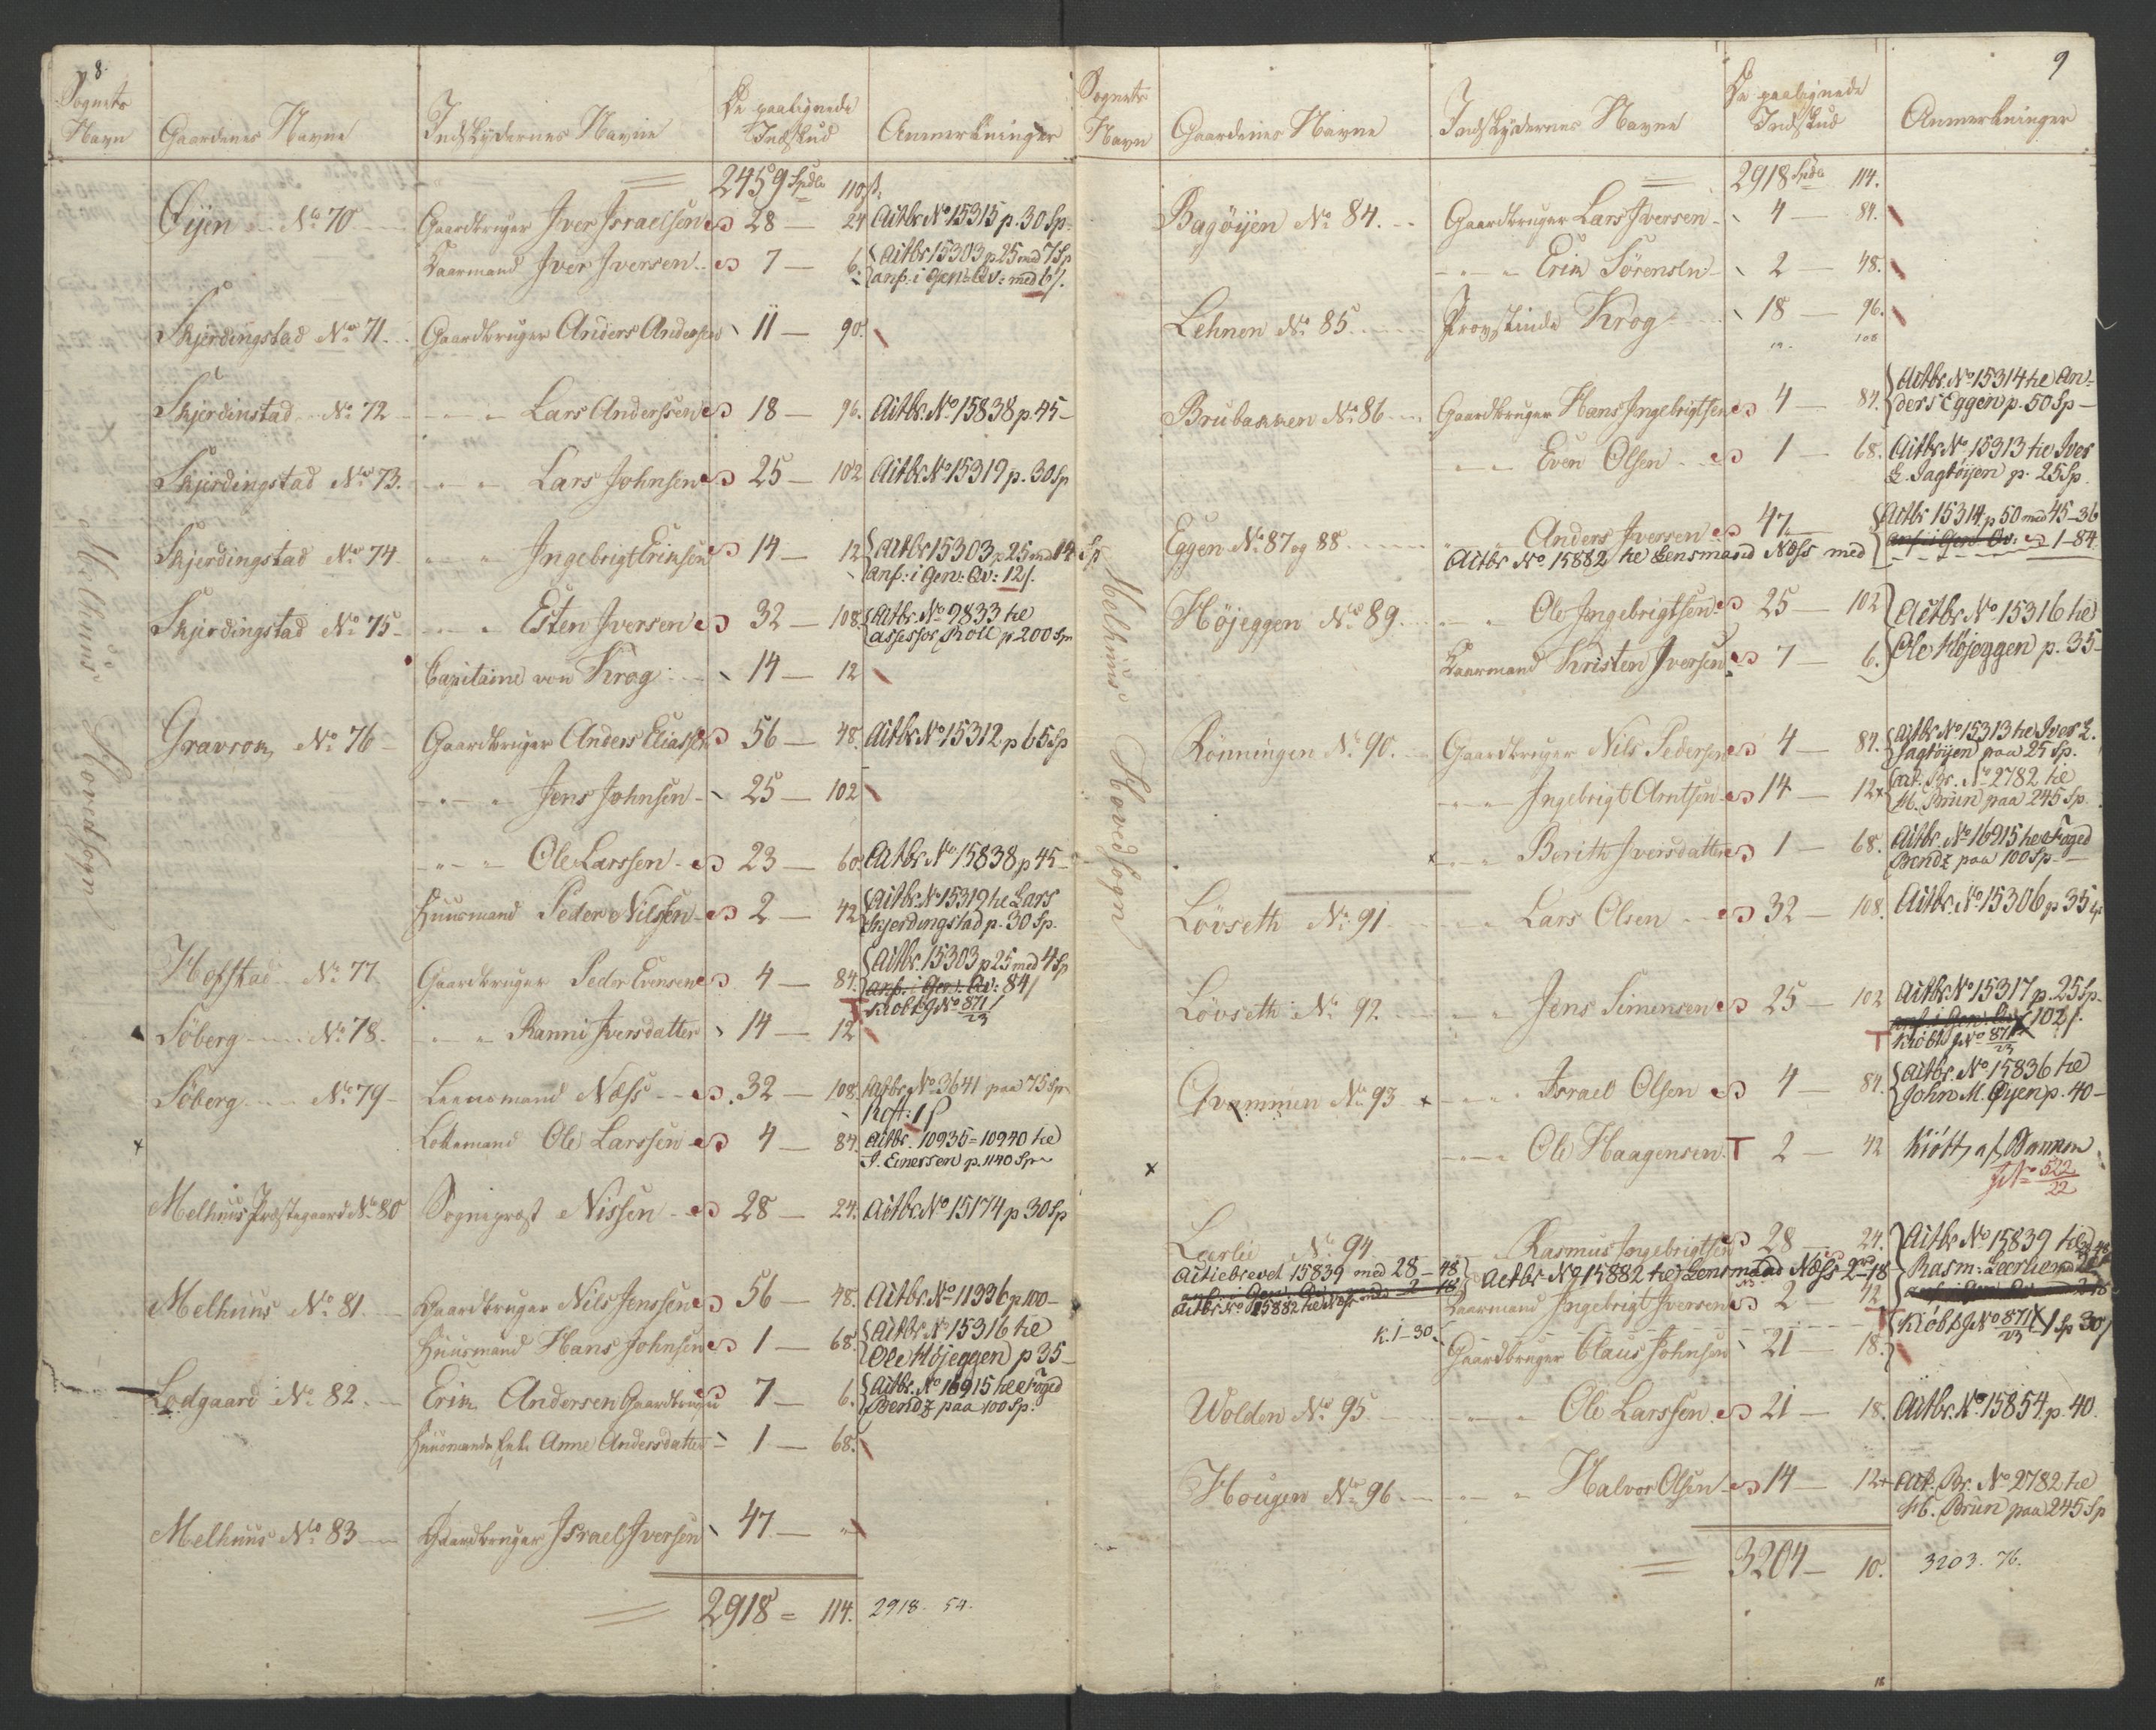 8.
Sognets Navn	Gaardenes Navne	Indskydernes Navne	De paalignede Indskud	Anmerkninger
2459 Spdlr 110 s.
Melhuus Hovedsogn
Öijen No 70	Gaardbruger Iver Israelsen	28 — 24	Actbr No 15315 p. 30 Sp.
Kaarmand Iver Iversen	7 — 6.	Actbr 15303 p 25 med 7 Sp
anf: i Gen: Qv: med 6 s.
Skjerdingstad No 71	Gaardbruger Anders Anderssen	11 — 90.
Skjerdinstad No 72	" Lars Anderssen	18 — 96.	Actbr. No 15838 p. 45 —
Skjerdingstad No 73.	" Lars Johnsen	25 — 102	Actbr. No 15319 p. 30 Sp
Skjerdingstad No 74	" Ingebrigt Eriksen	14 — 12	Actbr 15303 p 25 med 14 Sp
anf: i Gen: Qv: 12 s.
Skjerdingstad No 75	" Esten Iversen	32 — 108.	Actbr. No 9833 til
assessor Roll p 200 Sp
Capitaine von Krog	14 — 12
Gravrok No 76	Gaardbruger Anders Eliassen	56 — 48.	Actbr No 15312 p 65 Sp
" Jens Johnsen	25 — 102
" Ole Larssen	23 — 60.	Actbr. No 15838 p 45 —
Huusmand Peder Nilssen	2 — 42	Actbr. No 15319 til Lars
Skjerdingstad p. 30 Sp.
Hofstad No 77	Gaardbruger Peder Evensen	4 — 84.	Actbr. 15303 p 25 med 4 Sp
anf: i Gen: Qv: 84 s
T Kiöbt J No 871/23
Söberg No 78.	" Ranni Iversdatter	14 — 12
Söberg No 79	Leensmand Næss	32 — 108.	Actbr No 3641 paa 75 Sp
Lottamand Ole Larssen	4 — 84.	Actbr. 10935 = 10940 til
J. Einersen p. 1140 Sp
Melhuus Præstegaard No 80	Sogneprost Nissen	28 — 24.	Actbr No 15174 p 30 Sp
Melhuus No 81.	Gaardbruger Nils Jenssen	56 — 48.	Actbr. No 11336 p 100 —
Huusmand Hans Johnsen	1 — 68.	Actbr. No 15316 til
Ole Höjeggen p 35 —
Lodgaard No 82.	Erik Andersen Gaardbruger	7 — 6.	Actbr. No 16915 til Foged
Bendz paa 100 Sp.
Huusmands Enke Anne Andersdatter	1 — 68.
Melhuus No 83	Gaardbruger Israel Iversen	47 — "
2918 = 114.	2918. 54.
9
Sognets Navn	Gaardenes Navne	Indskydernes Navne	De paalignede Indskud	Anmerkninger
2918 Spdlr 114.
Melhuus Hovedsogn
Bagöijen No 84.	Gaardbruger Lars Iversen	4 — 84.
" Erik Sörensen	2 — 48.
Lehnen No 85.	Provstinde Krog	18 — 96.
". 108
Brubakken No 86	Gaardbruger Hans Ingebrigtsen	4 — 84.	Actbr. No 15314 til An-
ders Eggen p. 50 Sp —
" Even Olsen	1 — 68.	Actbr No 15313 til Iver
L. Jagtöijen p. 25 Sp.
Eggen No 87 og 88.	" Anders Iversen	47 —	Actbr 15314 p 50 med 45 - 36
anf i Gen Qv: 1 - 84
Actbr No 15882 til Lensmand Næss med
Höjeggen No 89.	" Ole Ingebrigtsen	25 — 102	Actbr. No 15316 til
Kaarmand Kristen Iversen	7 — 6.	Ole Höjeggen p. 35 —
Rönningen No 90.	Gaardbruger Nils Pedersen	4 — 84.	Actbr No 15313 til Iver L.
Jagtöijen paa 25 Sp.
" Ingebrigt Arntsen	14 — 12	Act. Br. No 2782 til
H. Brun paa 245 Sp.
" Berith Iversdatter	1 — 68.	Actbr. No 16915 til Foged
Bendz paa 100 Sp —
Lövseth No 91	" Lars Olsen	32 — 108.	Actbr. No 15306 p 35 Sp
Lövseth No 92.	" Jens Simensen	25 — 102	Actbr. No 15317 p. 25 Sp.
anf i Gen: Qv: 102 s.
T Kiöbt J No 871/23
Qvammen No 93	" Israel Olsen	4 — 84.	Actbr. No 15836 til
John M. Öyen p. 40 —
" Ole Haagensen. T	2 — 42	Kiöbt af Banken
J No 522/22
Leerlie No 94	" Rasmus Ingebrigtsen	28 — 24.	Actbr No 15839 til
Rasm: Leerlie
Actiebrevet 15839 med 28 - 48
Actbr No 15882 til Lensmand Næss 2 - 18
Actbr No 15882 til Næss med 2 - 18
Kaarmand Ingebrigt Iversen	2 — 42
T Kiöbt J No 871/23 1 Sp 30 s
K. 1 - 30.
Gaardbruger Claus Johnsen	21 — 18.
Wolden No 95	" Ole Larssen	21 — 18.	Actbr. No 15854 p. 40.
Hougen No 96	" Halvor Olsen	14 — 12	Act. Br. No 2782 til
H. Brun paa 245 Sp
3204 — 10.	3203. 76.